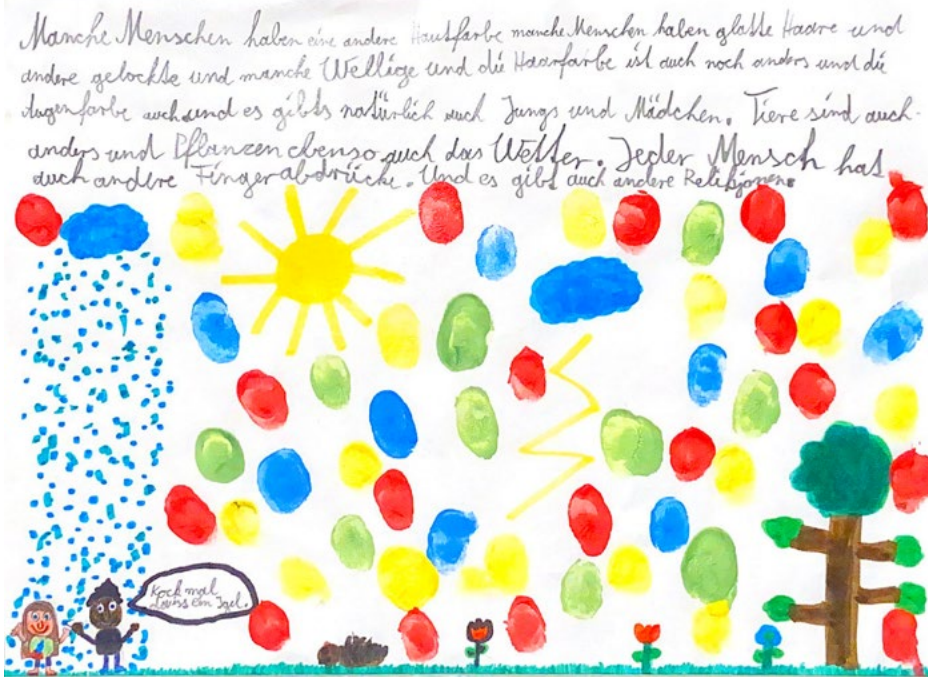 Manche Menschen haben eine andere Hautfarbe manche Menschen haben glatte Haare und
andere gelockte und manche Wellige und die Haarfarbe ist auch noch anders und die
Augenfarbe auch und es gibts natürlich auch Jungs und Mädchen. Tiere sind auch
anders und Pflanzen ebenso auch das Wetter. Jeder Mensch hat
auch andere Fingerabdrücke. Und es gibt auch andere Relikjonen.
Kock mal
ein Igel.